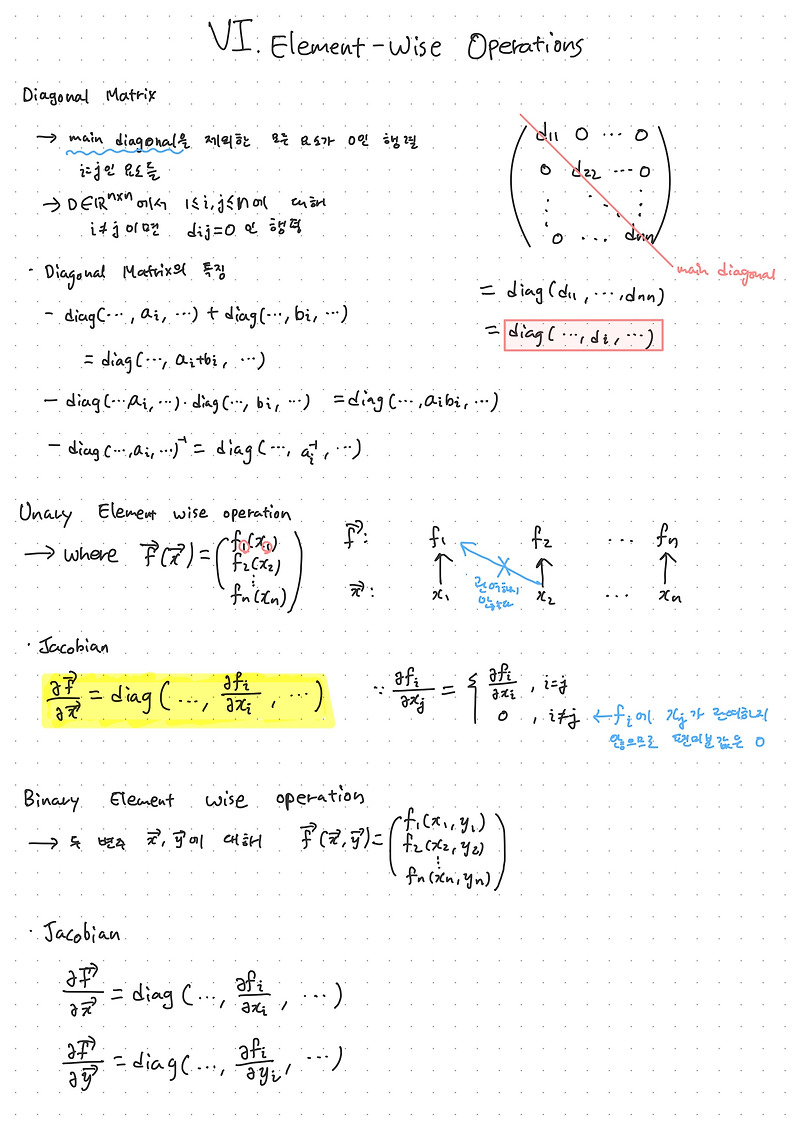 VI. Element-Wise Operations
Diagonal Matrix
→ main diagonal을 제외한 모든 요소가 0인 행렬
i=j인 요소들
→ D∈ℝⁿˣⁿ에서 1≤i,j≤n에 대해
i≠j이면 dij=0 인 행렬
(d11 0 ⋯ 0
0 d22 ⋯ 0
⋮ ⋱ ⋮
0 ⋯ dnn)
main diagonal
= diag(d11, ⋯, dnn)
= diag(⋯, di, ⋯)
· Diagonal Matrix의 특징
- diag(⋯, ai, ⋯) + diag(⋯, bi, ⋯)
= diag(⋯, ai+bi, ⋯)
- diag(⋯ai, ⋯)·diag(⋯, bi, ⋯) = diag(⋯, aibi, ⋯)
- diag(⋯, ai, ⋯)⁻¹ = diag(⋯, ai⁻¹, ⋯)
Unary Element wise operation
→ where f⃗(x⃗) = (f1(x1)
f2(x2)
⋮
fn(xn))
f⃗: f1 f2 ⋯ fn
관여하지
않는다
x⃗: x1 x2 ⋯ xn
· Jacobian
∂f⃗/∂x⃗ = diag(⋯, ∂fi/∂xi, ⋯) ∵ ∂fi/∂xj = { ∂fi/∂xi , i=j
0 , i≠j ← fi에 xj가 관여하지
않으므로 편미분값은 0
Binary Element wise operation
→ 두 변수 x⃗, y⃗에 대해 f⃗(x⃗, y⃗) = (f1(x1, y1)
f2(x2, y2)
⋮
fn(xn, yn))
· Jacobian
∂f⃗/∂x⃗ = diag(⋯, ∂fi/∂xi, ⋯)
∂f⃗/∂y⃗ = diag(⋯, ∂fi/∂yi, ⋯)